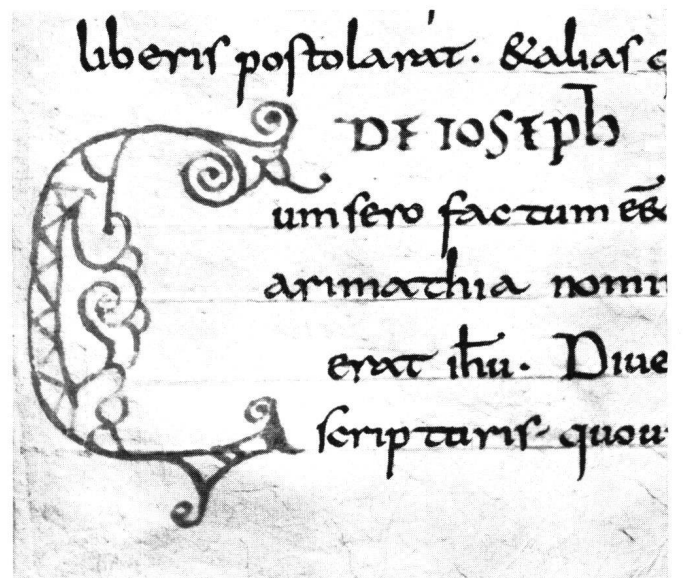 liberis postolarat. &alias q
DE IOSEPh
Cum sero factum ess&
arimathia nomin
erat ihu. Dive
scripturis. quou